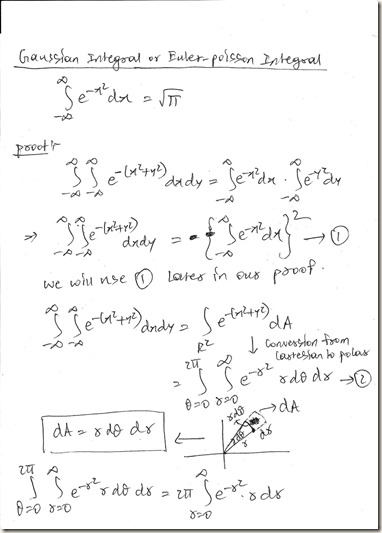 Gaussian Integral or Euler-poisson Integral
∫_{-∞}^{∞} e^{-x²} dx = √π
proof:-
∫_{-∞}^{∞} ∫_{-∞}^{∞} e^{-(x²+y²)} dx dy = ∫_{-∞}^{∞} e^{-x²} dx · ∫_{-∞}^{∞} e^{-y²} dy
⇒ ∫_{-∞}^{∞} ∫_{-∞}^{∞} e^{-(x²+y²)} dx dy = { ∫_{-∞}^{∞} e^{-x²} dx }² → ①
we will use ① later in our proof.
∫_{-∞}^{∞} ∫_{-∞}^{∞} e^{-(x²+y²)} dx dy = ∫_{R²} e^{-(x²+y²)} dA
↓ conversion from cartesian to polar
= ∫_{θ=0}^{2π} ∫_{r=0}^{∞} e^{-r²} r dθ dr → ②
dA = r dθ dr ←
r dθ
→ dA
dθ
r
dr
∫_{θ=0}^{2π} ∫_{r=0}^{∞} e^{-r²} r dθ dr = 2π ∫_{r=0}^{∞} e^{-r²} · r dr